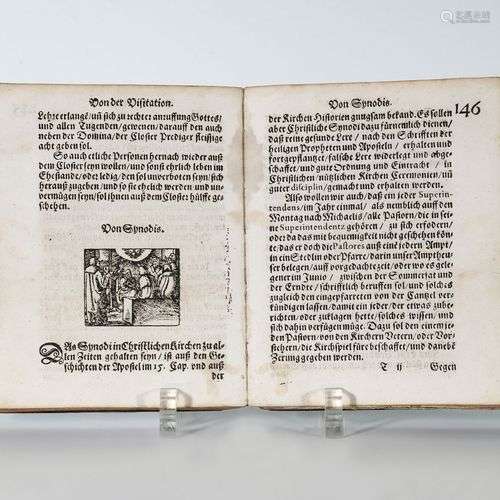 Von der Visitation.
Lehre erlange/ uñ sich zu rechter anruffung Gottes/
und allen Tugenden/gewenen/ darauff den auch
neben der Domina/ der Closter Prediger fleissige
acht geben sol.
So auch etliche Personen hernach wieder auß
dem Closter seyn wollen/ und sonst ehrlich leben im
Ehestande/ ode ledig/ den sol unverboten seyn/ sich
herauß zugeben/ und so sie ehrlich werden und unvermügen
seyn/ sol ihnen auß dem Closter hülffe geschehen.
Von Synodis.
DAs Synodi in Christlichen Kirchen zu allen
Zeiten gehalten seyn/ ist auß den Geschichten
der Apostel im 15. Cap. und auß
der
Von Synodis.
146
der Kirchen Historien gungsam bekand. Es sollen
aber Christliche Synodi dazu fürnemlich dienen/
daß reine gesunde Lere/ nach den Schrifften der
heiligen Propheten und Aposteln/ erhalten und
fortgepflantzet/ falsche Lere widerlegt und abgeschafft/
und gute Ordnung und Eintracht/ in
Christlichen/ nützlichen Kirchen Ceremonien/ uñ
guter disciplin/ gemacht und erhalten werden.
Also wollen wir auch/ daß ein jeder Superintendens/
im Jahr einmal/ als nemblich auff den
Montag nach Michaelis/ alle Pastorn/ die in seine
Superintendentz gehören/ zu sich erfordern/
oder da das mit bequemigkeit nicht geschehen könte/
das er doch die Pastores auß eine jedern Ampt/
in ein Stedlin oder Pfarre/ darin unser Ampthauser
belegen/ auff vorgedachte zeit/ oder wo es gelegener
in Junio/ zwischen der Sommerzat und
der Erndte/ schrifftlich beruffen sol/ und solches
zugleich den eingepfarreten von der Cantzel verkündigen
lassen/ damit ein jeder/ der etwas zuberichten/
oder zuklagen hette/ solches wissen/ und
sich dahin verfügen müge. Dazu sol den einem jeden
Pastorn/ von den Kirchern Vetern/ oder Vorstehern/
die Kirchspiel fuhre beschaffet/ und danebẽ
Zerung gegeben werden.
T ij
Gegen